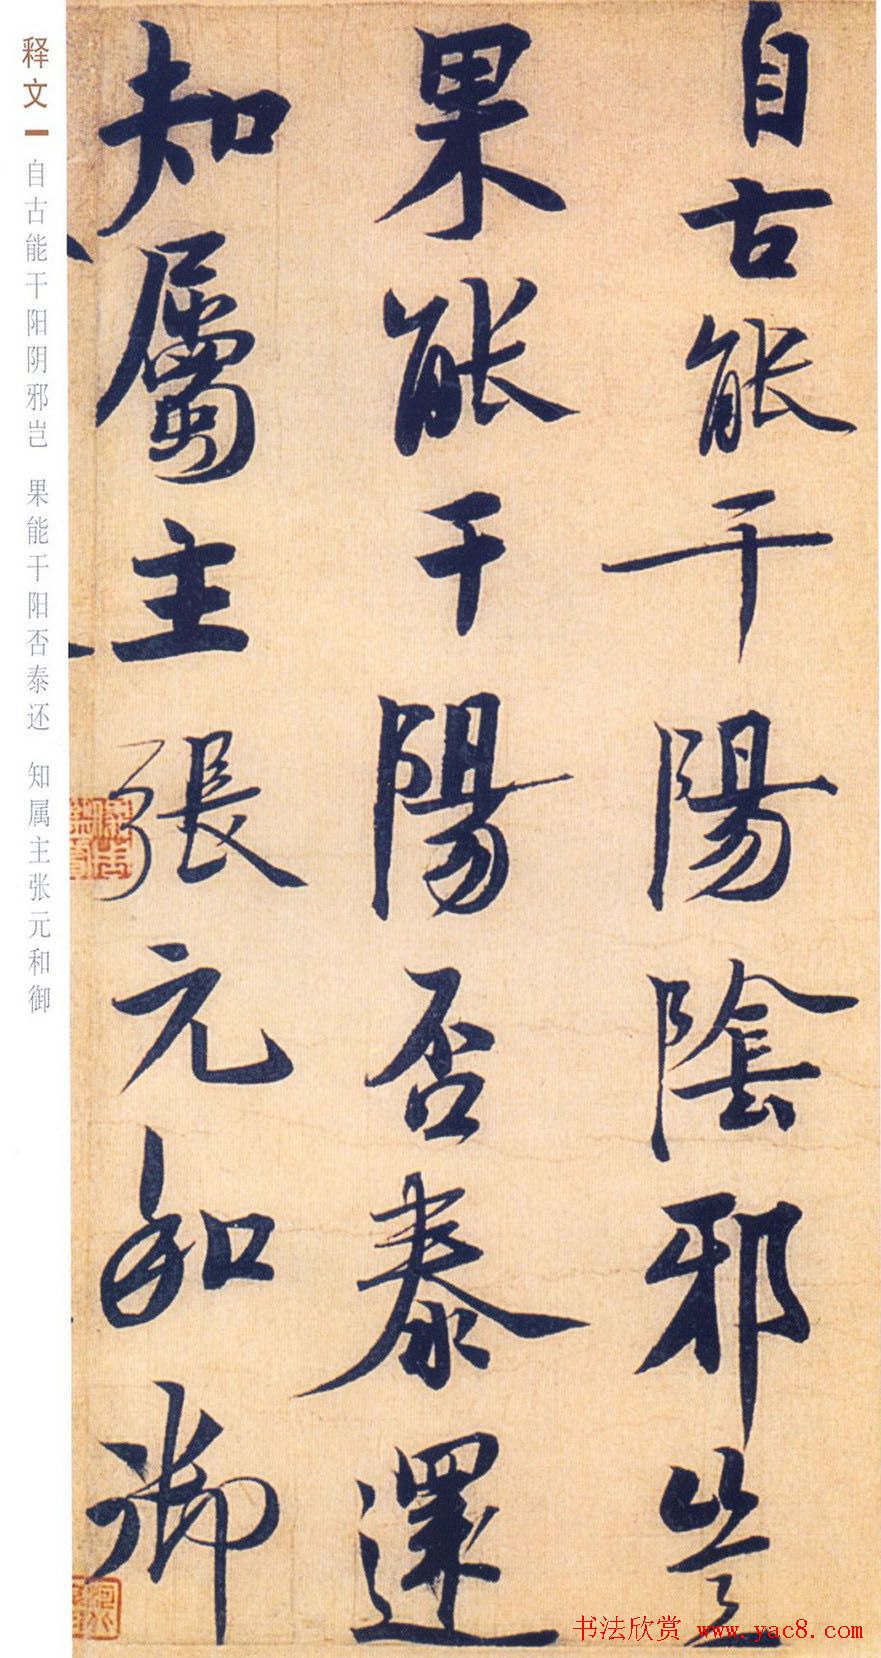 自古能干陽陰邪豈
果能干陽否泰還
知屬主張元和御
释文
自古能干阳阴邪岂 果能干阳否泰还 知属主张元和御
书法欣赏 www.yac8.com